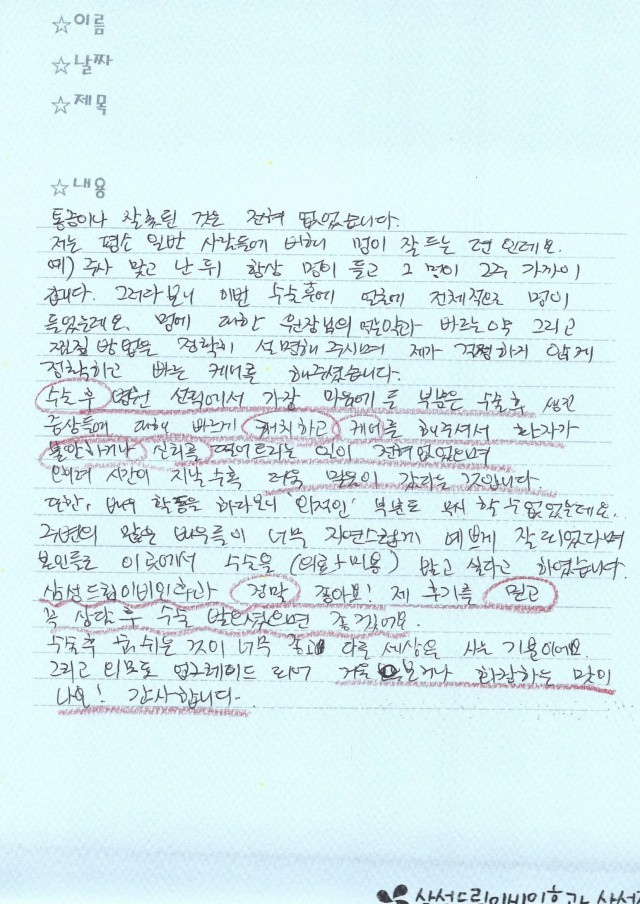 ☆이름
☆날짜
☆제목
☆내용
통증이나 잘못된 것은 전혀 없었습니다.
저는 평소 일반 사람들에 비해 멍이 잘 드는 편 인데요.
예) 주사 맞고 난 뒤 항상 멍이 들고 그 멍이 2주 가까이
갑니다. 그러다보니 이번 수술후에 얼굴에 전체적으로 멍이
들었는데요. 멍에 대한 원장님의 먹는약과 바르는약 그리고
찜질 방법을 정확히 설명해 주시며 제가 걱정하지 않게
정확하고 빠른 케어를 해주셨습니다.
수술 후 병원 선택에서 가장 마음에 든 부분은 수술 후 생긴
증상들에 대해 빠르게 캐치하고 케어를 해주셔서 환자가
불안하거나 신뢰를 떨어트리는 일이 전혀 없었으며
오히려 시간이 지날수록 더욱 믿음이 갔다는 것입니다.
또한, 배우 활동을 하다보니 '외적인' 부분도 무시 할 수 없었는데요.
주변의 많은 배우들이 너무 자연스럽게 예쁘게 잘 되었다며
본인들도 이곳에서 수술을 (의료+미용) 받고 싶다고 하였습니다.
삼성드림이비인후과 정말 좋아요! 제 후기를 믿고
꼭 상담 후 수술 받으셨으면 좋겠어요.
수술후 숨쉬는 것이 너무 좋고 다른 세상을 사는 기분이에요.
그리고 외모도 업그레이드 되어 거울 보거나 화장하는 맛이
나요! 감사합니다.
삼성드림이비인후과